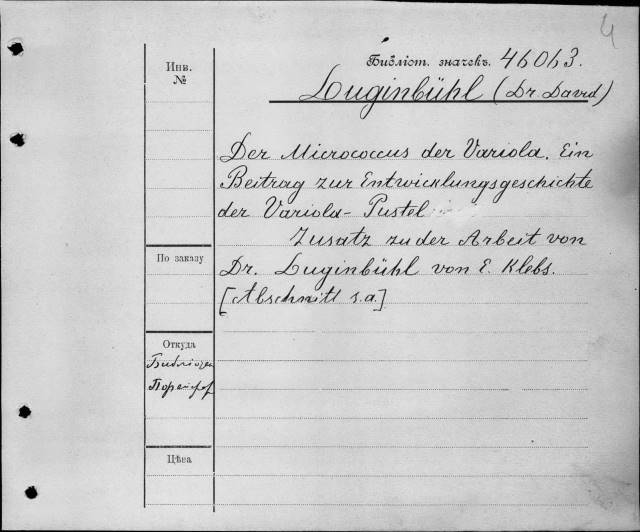 4
Библіот. значекъ. 46063.
Инв.
№
Luginbühl (Dr. David)
Der Micrococcus der Variola. Ein
Beitrag zur Entwicklungsgeschichte
der Variola-Pustel
Zusatz zu der Arbeit von
По заказу
Dr. Luginbühl von E. Klebs.
[Abschnitt s.a.]
Откуда
Цѣна